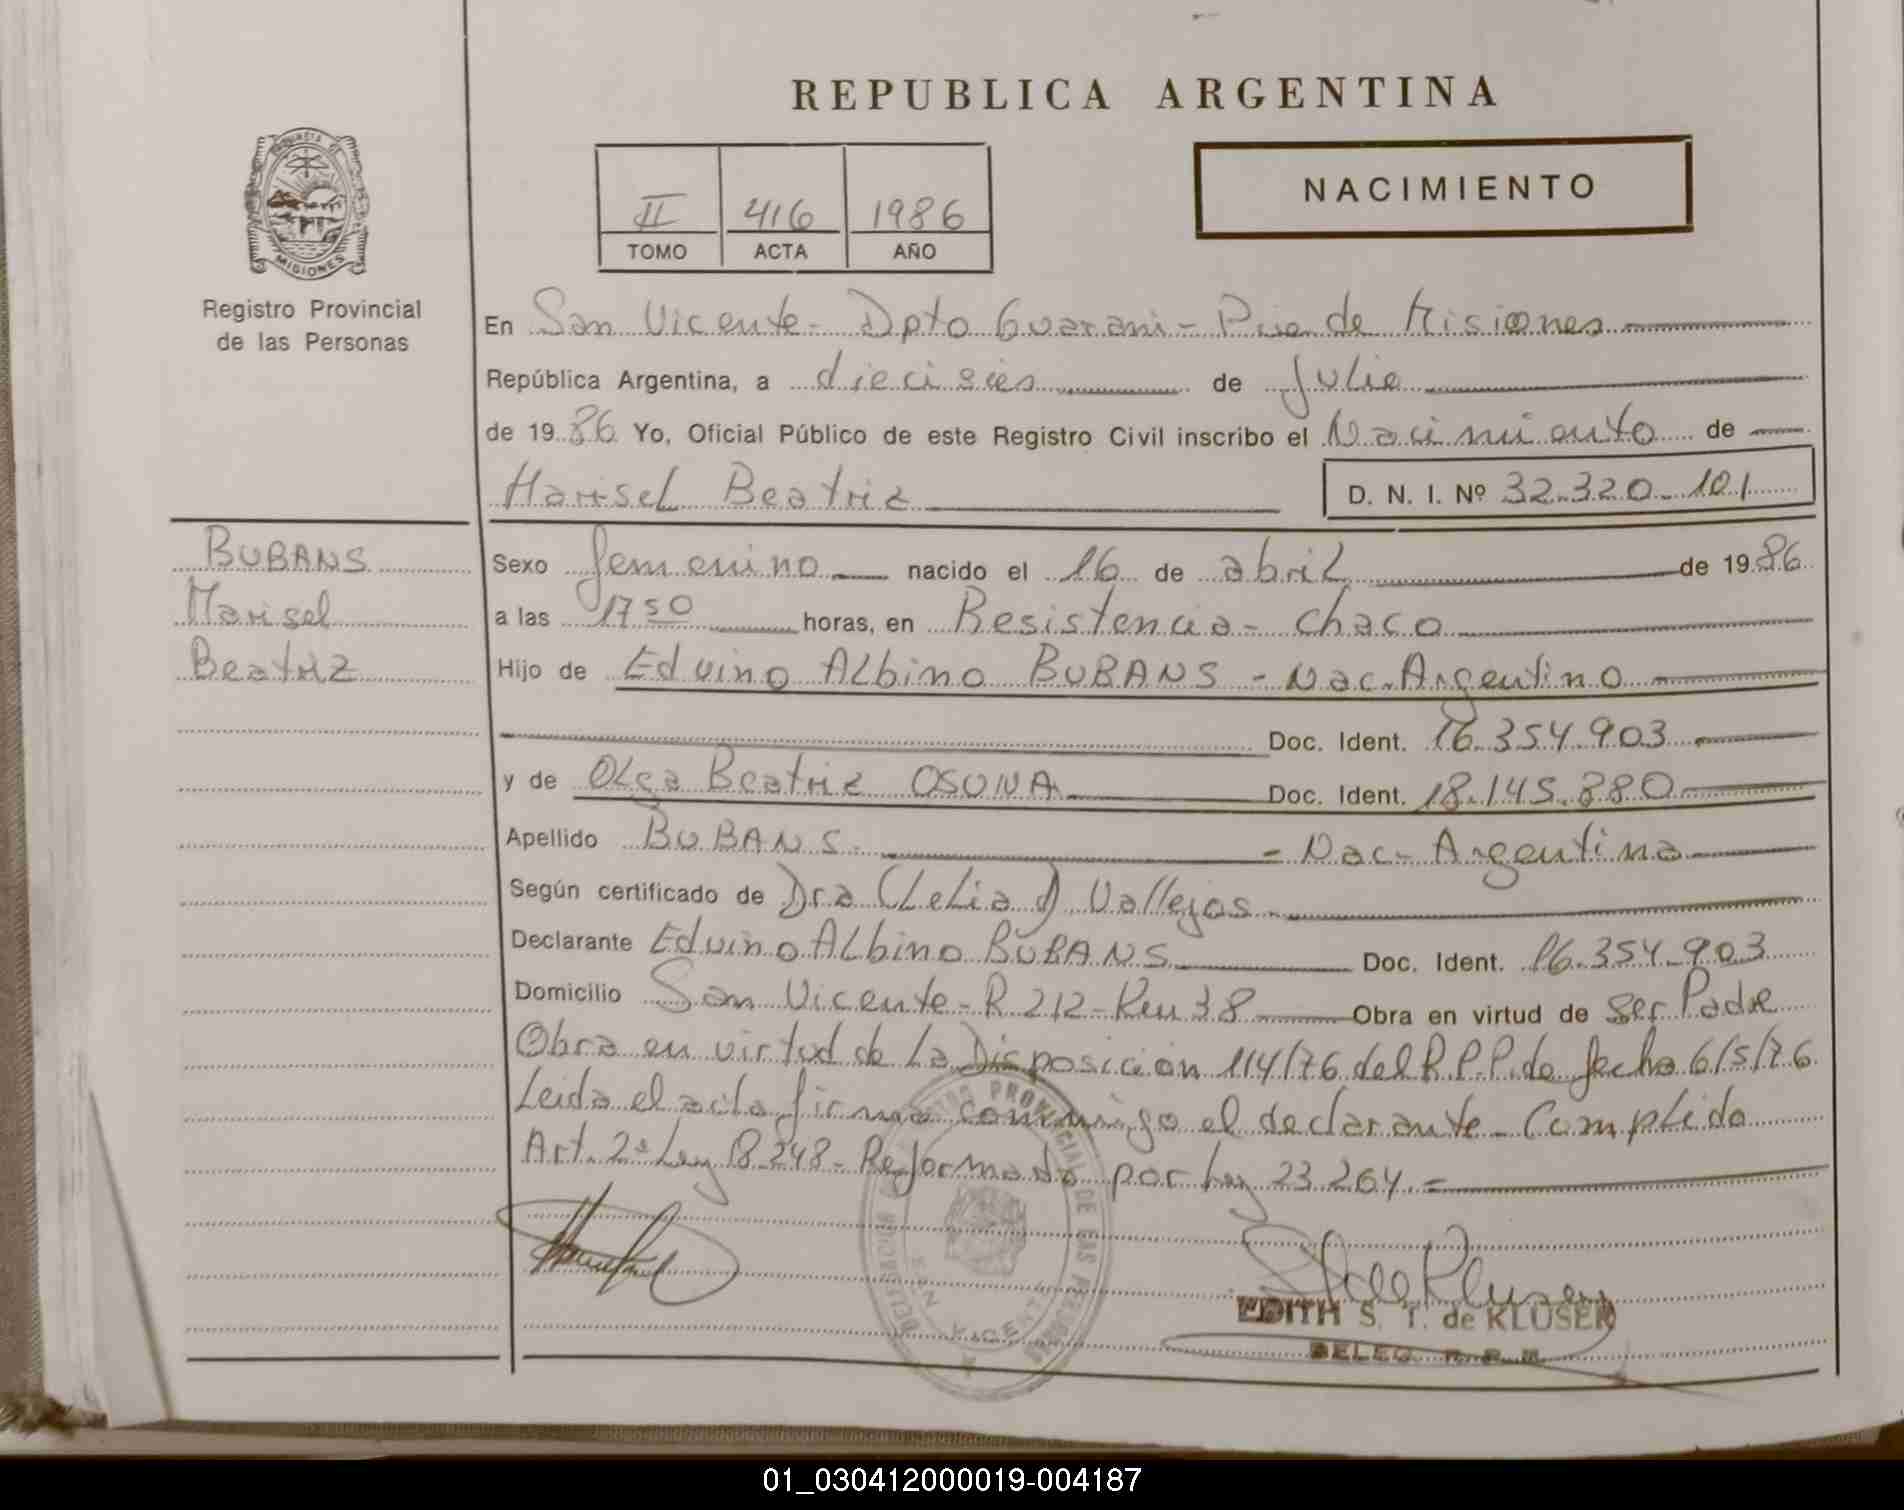 REPUBLICA ARGENTINA
PROVINCIA DE
MISIONES
Registro Provincial
de las Personas
II 416 1986
TOMO ACTA AÑO
NACIMIENTO
En San Vicente - Dpto Guarani - Pcia de Misiones
República Argentina, a dieciseis de Julio
de 1986 Yo, Oficial Público de este Registro Civil inscribo el Nacimiento de
Marisel Beatriz D. N. I. Nº 32.320.101
BUBANS
Marisel
Beatriz
Sexo femenino nacido el 16 de abril de 1986
a las 17 50 horas, en Resistencia - Chaco
Hijo de Eduino Albino BUBANS - Nac. Argentino
Doc. Ident. 16.354.903
y de Olga Beatriz OSUNA Doc. Ident. 18.145.880
Apellido BUBANS. - Nac - Argentina
Según certificado de Dra Clelia D Vallejos
Declarante Eduino Albino BUBANS Doc. Ident. 16.354.903
Domicilio San Vicente - R 212 - Km 38 Obra en virtud de ser Padre
Obra en virtud de la Disposición 114/76 del R.P.P. de fecha 6/5/76
Leida el acta firma conmigo el declarante - Complido
Art. 2º Ley 18.248 - Reformado por Ley 23.264. =
PROVINCIAL DE LAS PERSONAS
SAN VICENTE
EDITH S. T. de KLUSER
DELEG. R. P. P.
01_030412000019-004187